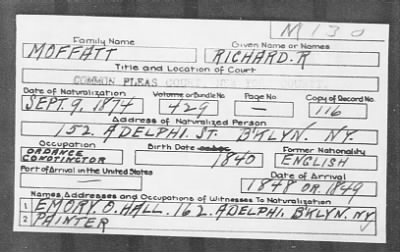 M 130
Family Name Given Name or Names
MOFFATT RICHARD. R
Title and Location of Court
COMMON PLEAS
Date of Naturalization Volume or Bundle No. Page No. Copy of Record No.
SEPT. 9, 1874 429 — 116
Address of Naturalized Person
152. ADELPHI. ST. B'KLYN. NY.
Occupation Birth Date Former Nationality
ORDANCE
CONOTINGTOR 1840 ENGLISH
Port of Arrival in the United States Date of Arrival
1848 OR 1849
Names, Addresses and Occupations of Witnesses To Naturalization
1 EMORY. O. HALL. 162. ADELPHI. B'KLYN. NY
2 PAINTER